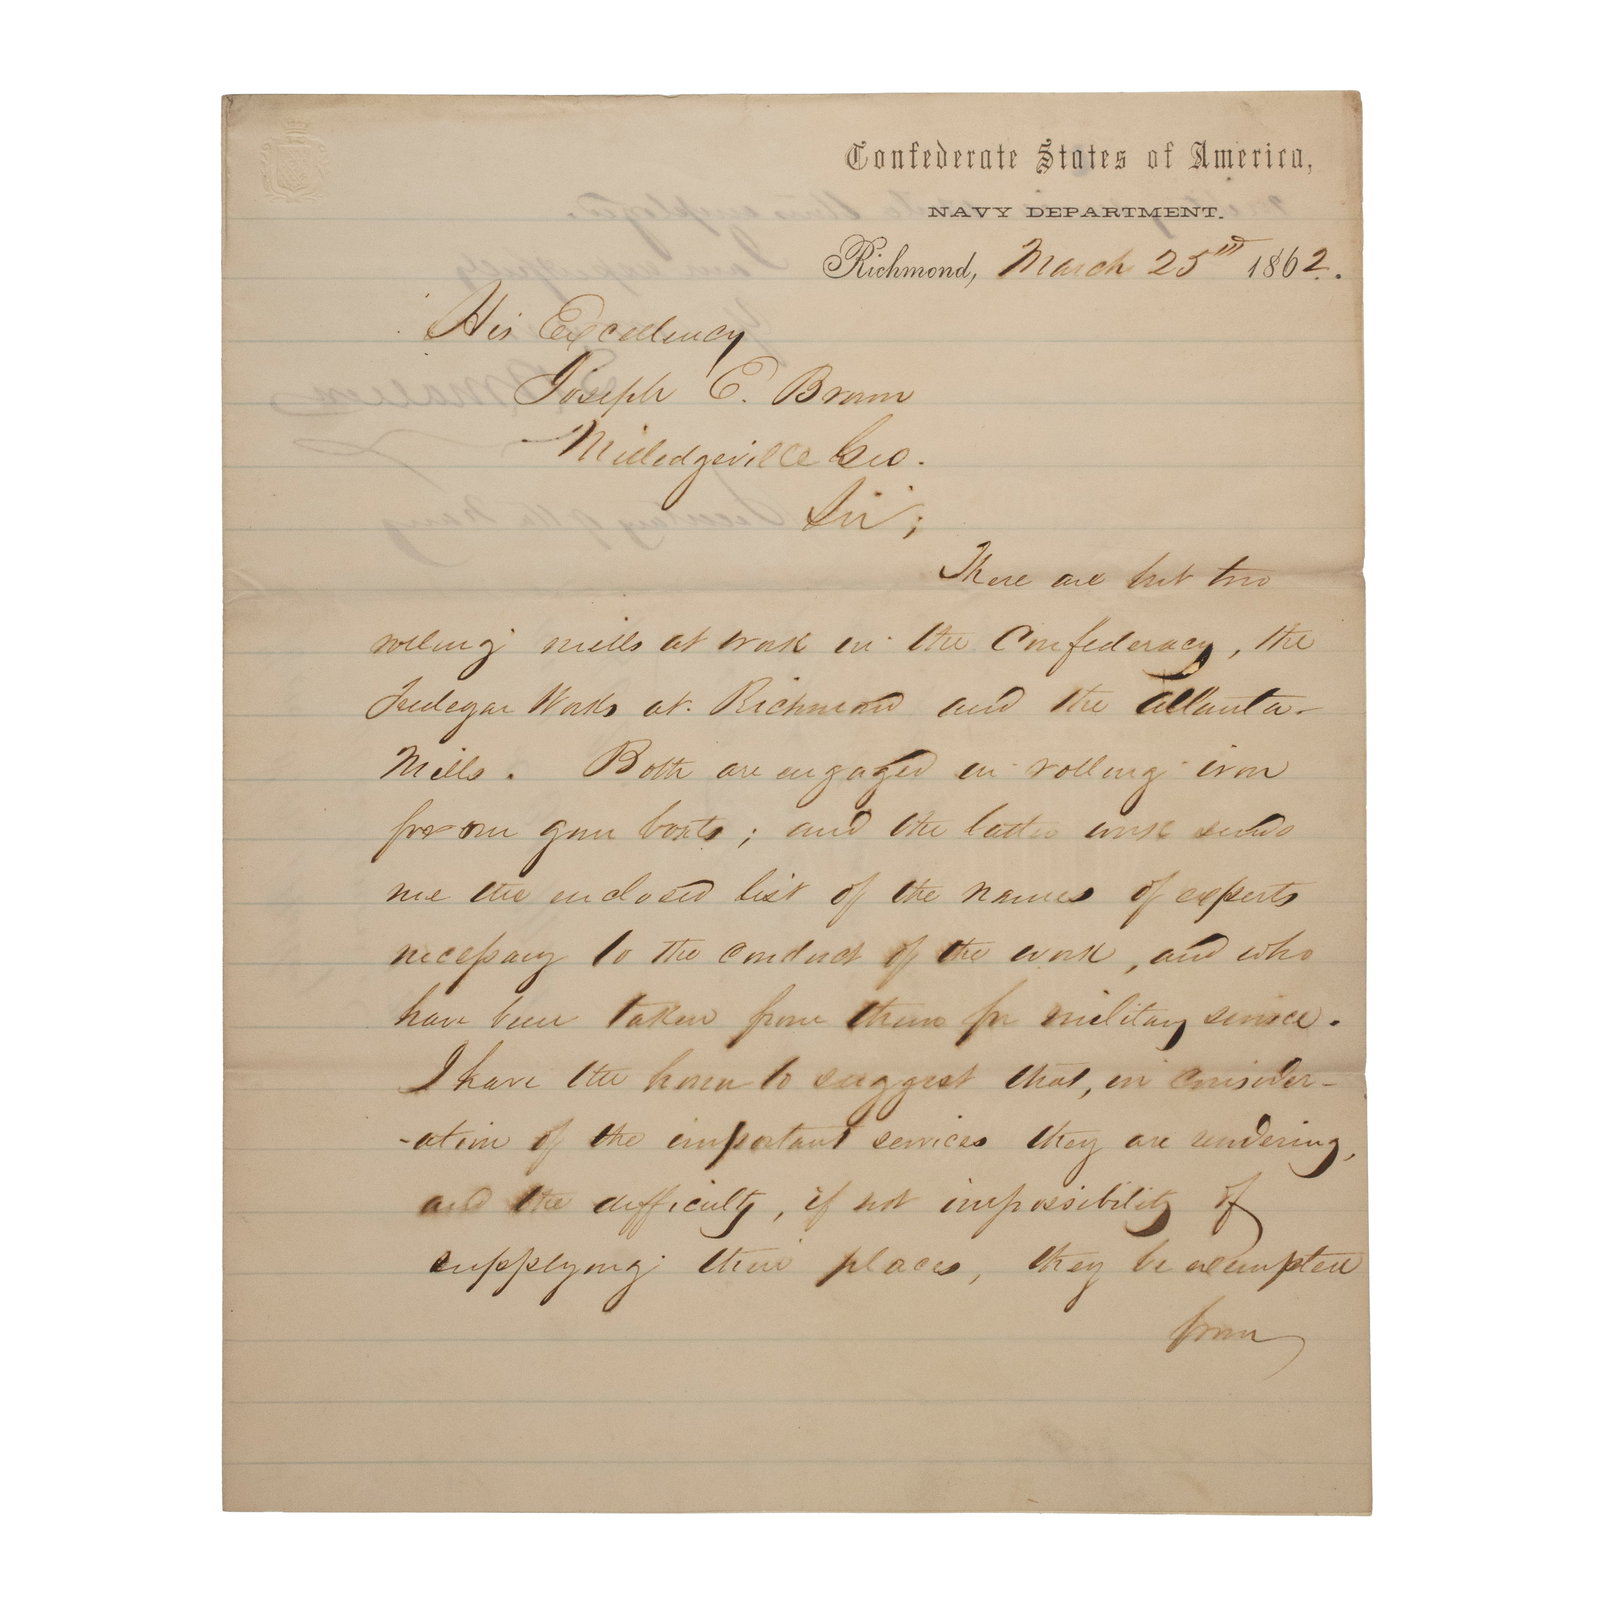 Confederate States of America,
NAVY DEPARTMENT.
Richmond, March 25th 1862.
His Excellency
Joseph E. Brown
Milledgeville Geo.
Sir;
There are but two
rolling mills at work in the Confederacy, the
Tredegar Works at Richmond and the Atlanta
Mills. Both are engaged in rolling iron
for our gun boats; and the latter work sends
me the enclosed list of the names of experts
necessary to the conduct of the work, and who
have been taken from them for military service.
I have the honor to suggest that, in consider-
-ation of the important services they are rendering,
and the difficulty, if not impossibility of
supplying their places, they be exempted
from